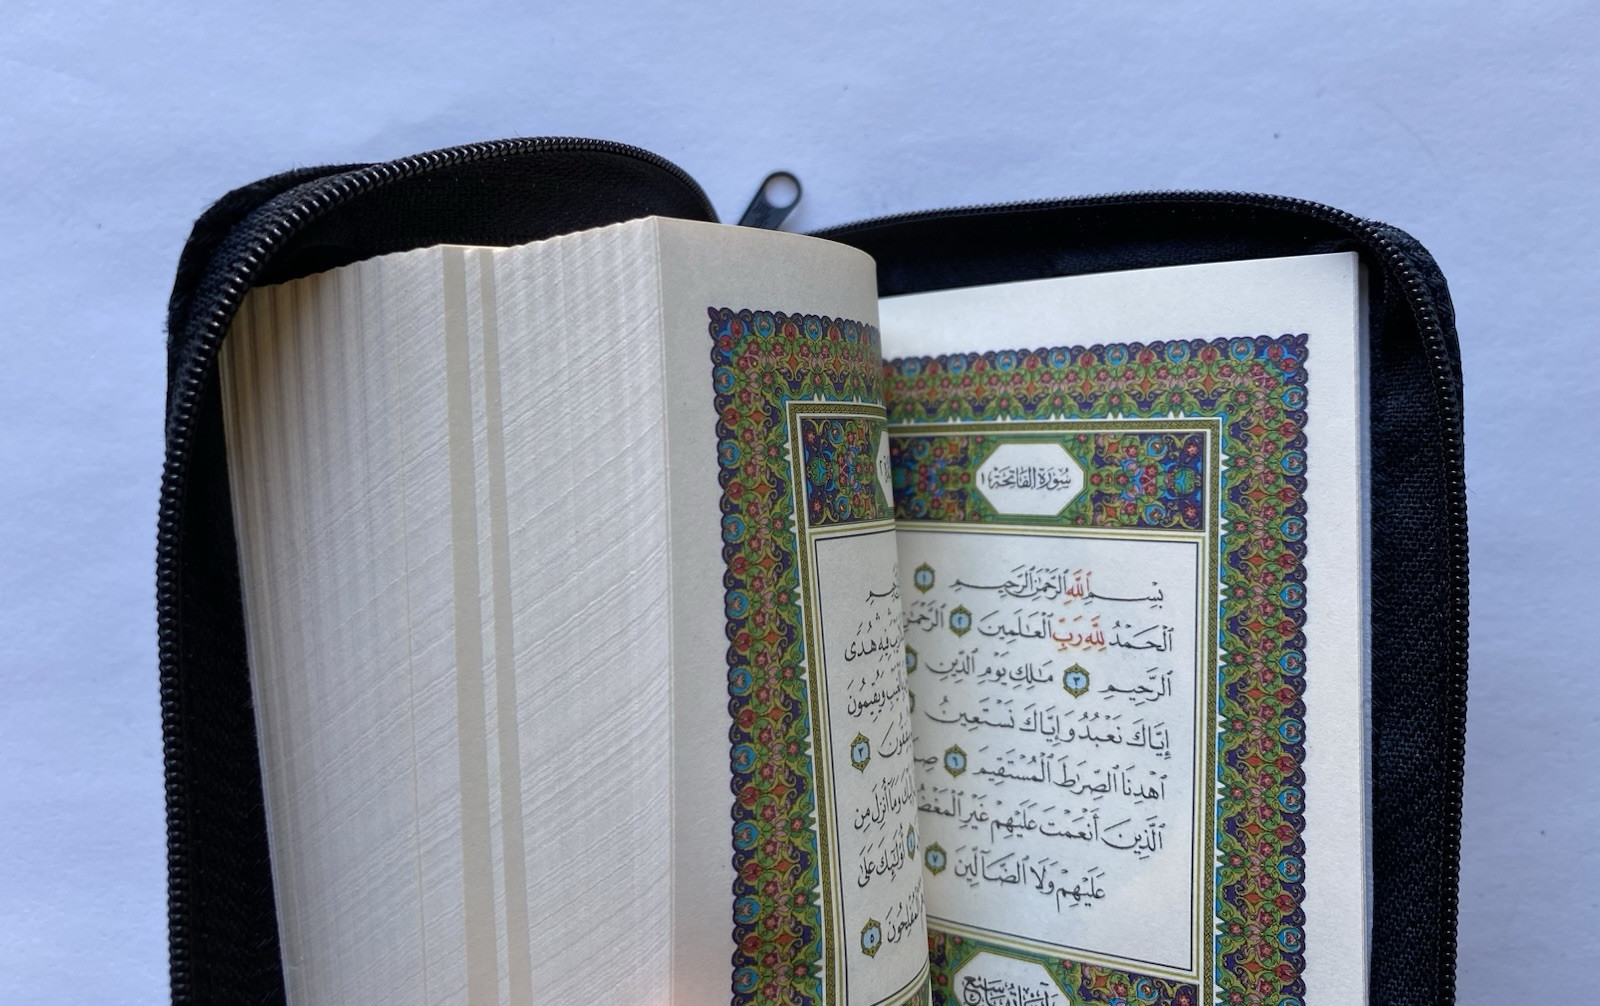 سُورَةُ الفَاتِحَةِ ١
بِسْمِ ٱللَّهِ ٱلرَّحْمَٰنِ ٱلرَّحِيمِ ١
ٱلْحَمْدُ لِلَّهِ رَبِّ ٱلْعَٰلَمِينَ ٢ ٱلرَّحْمَٰنِ
ٱلرَّحِيمِ ٣ مَٰلِكِ يَوْمِ ٱلدِّينِ
إِيَّاكَ نَعْبُدُ وَإِيَّاكَ نَسْتَعِينُ
ٱهْدِنَا ٱلصِّرَٰطَ ٱلْمُسْتَقِيمَ ٦
ٱلَّذِينَ أَنْعَمْتَ عَلَيْهِمْ غَيْرِ
عَلَيْهِمْ وَلَا ٱلضَّآلِّينَ ٧
فِيهِ هُدًى
وَيُقِيمُونَ
٣
وَمَآ أُنزِلَ مِن
أُو۟لَٰٓئِكَ عَلَىٰ
ٱلْمُفْلِحُونَ ٥